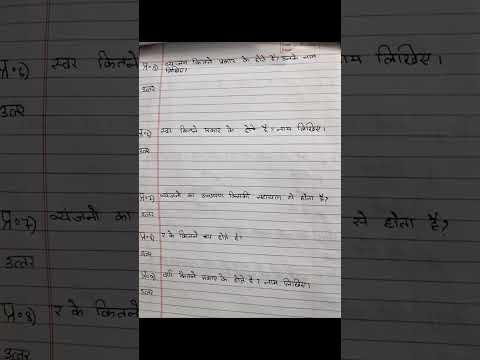 प्र०5) व्यंजन कितने प्रकार के होते हैं? उनके नाम
लिखिए।
उत्तर
प्र०6) स्वर कितने प्रकार के होते हैं? नाम लिखिए।
उत्तर
प्र०7) व्यंजनों का उच्चारण किसकी सहायता से होता है?
उत्तर
प्र०8) र के कितने रूप होते हैं?
उत्तर
प्र०9) वर्ण कितने प्रकार के होते हैं? नाम लिखिए।
उत्तर